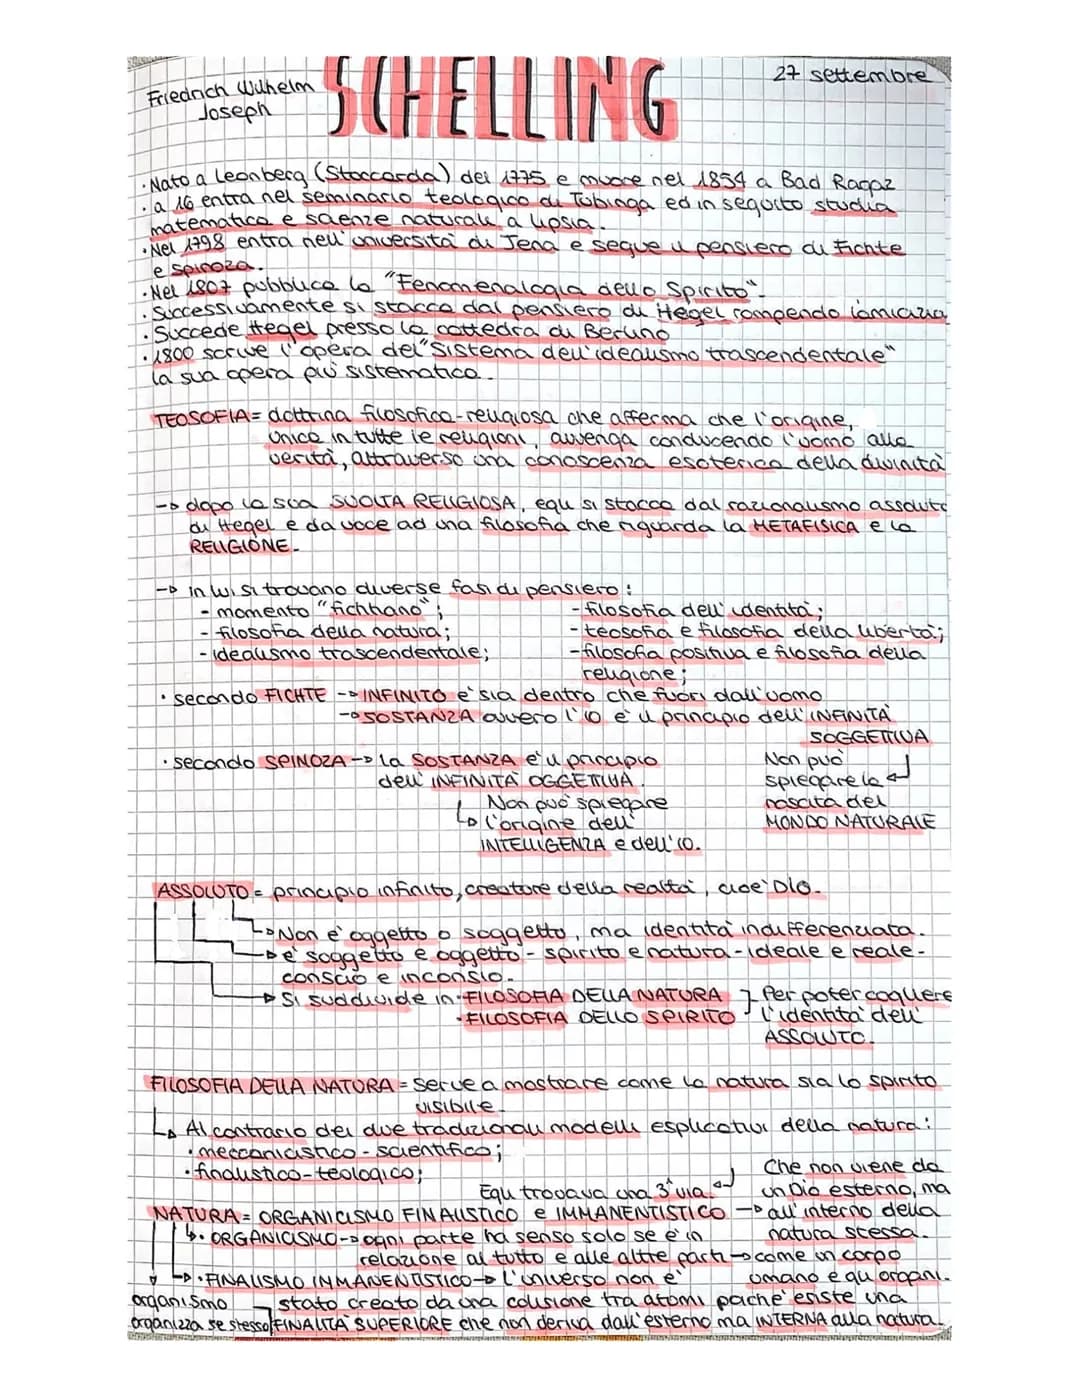 Friedrich Wilhelm
Joseph
SCHELLING
27 settembre
· Nato a Leonberg (Stoccarda) del 1775 e muore nel 1854 a Bad Ragaz
· a 16 entra nel seminario teologico di Tubinga ed in seguito studia
matematica e scienze naturali a Lipsia.
· Nel 1798 entra nell'università di Jena e segue il pensiero di Fichte
e Spinoza.
· Nel 1807 pubblica la "Fenomenalogia dello Spirito".
· Successivamente si stacca dal pensiero di Hegel rompendo l'amicizia
· Succede Hegel presso la cattedra di Berlino
· 1800 scrive l'opera del "Sistema dell'idealismo trascendentale"
la sua opera più sistematica.
TEOSOFIA = dottrina filosofica-religiosa che afferma che l'origine,
unica in tutte le religioni, avvenga conducendo l'uomo alla
verità, attraverso una conoscenza esoterica della divinità
-> dopo la sua SVOLTA RELIGIOSA, egli si stacca dal razionalismo assoluto
di Hegel e da voce ad una filosofia che riguarda la METAFISICA e la
RELIGIONE.
-> in lui si trovano diverse fasi di pensiero:
- momento "fichtiano";
- filosofia della natura;
- idealismo trascendentale;
- filosofia dell'identità;
- teosofia e filosofia della libertà;
- filosofia positiva e filosofia della
religione;
· secondo FICHTE -> INFINITO è sia dentro che fuori dall'uomo
-> SOSTANZA ovvero l'io è il principio dell'INFINITÀ
SOGGETTIVA
Non può
spiegare la
nascita del
MONDO NATURALE
· secondo SPINOZA -> la SOSTANZA è il principio
dell'INFINITÀ OGGETTIVA
Non può spiegare
l'origine dell'
INTELLIGENZA e dell'io.
ASSOLUTO = principio infinito, creatore della realtà, cioè DIO.
-> Non è oggetto o soggetto, ma identità indifferenziata.
-> è soggetto e oggetto - spirito e natura - ideale e reale -
conscio e inconsio.
-> Si suddivide in · FILOSOFIA DELLA NATURA
· FILOSOFIA DELLO SPIRITO
Per poter cogliere
l'identità dell'
ASSOLUTO.
FILOSOFIA DELLA NATURA = serve a mostrare come la natura sia lo spirito
visibile.
-> Al contrario dei due tradizionali modelli esplicativi della natura:
· meccanicistico - scientifico;
· finalistico-teologico;
Egli trovava una 3ª via.
Che non viene da
un Dio esterno, ma
all'interno della
natura stessa.
NATURA = ORGANICISMO FINALISTICO e IMMANENTISTICO ->
· ORGANICISMO -> ogni parte ha senso solo se è in
relazione al tutto e alle altre parti -> come un corpo
umano e gli organi.
-> · FINALISMO IMMANENTISTICO -> l'universo non è
stato creato da una colisione tra atomi poiché esiste una
FINALITÀ SUPERIORE che non deriva dall'esterno ma INTERNA alla natura.
organismo
organizza se stesso